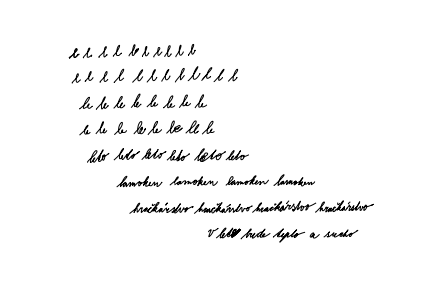 l l l l l l l l l l
l l l l l l l l l l l l
le le le le le le le le
le le le le le le le le
leto leto leto leto leto leto
lamohen lamohen lamohen lamohen
hračkárstvo hračkárstvo hračkárstvo hračkárstvo
V lete bude teplo a sucho